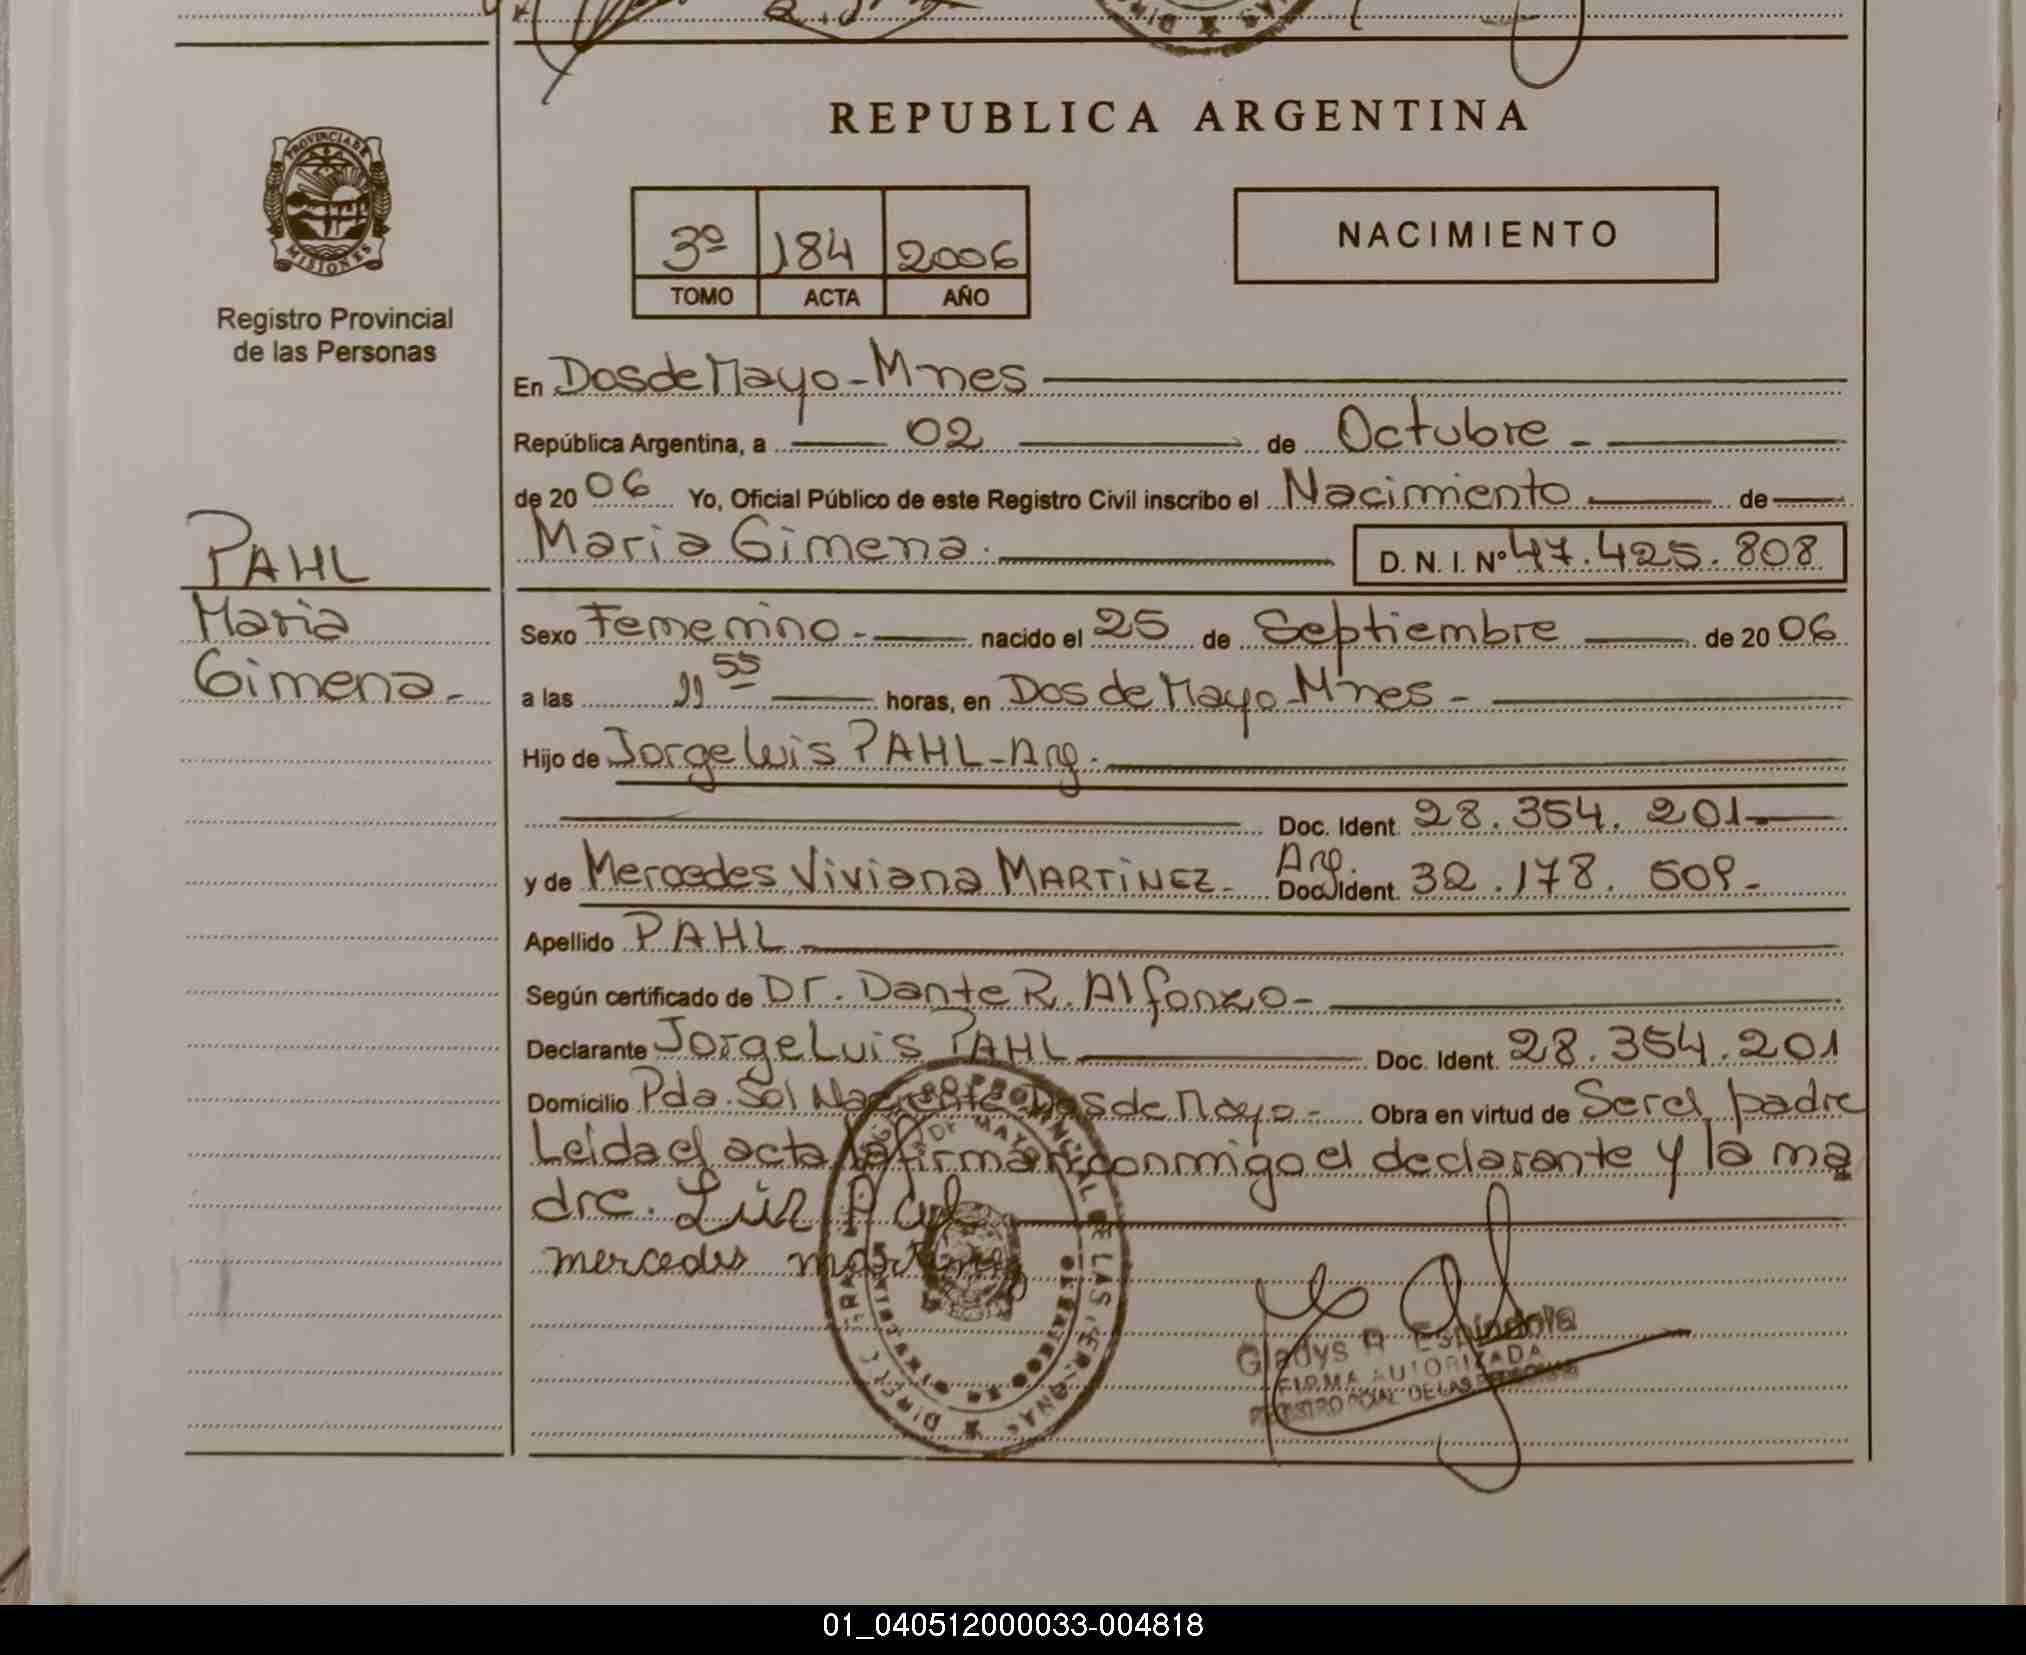 REPUBLICA ARGENTINA
PROVINCIA DE
MISIONES
Registro Provincial
de las Personas
3º 184 2006
TOMO ACTA AÑO
NACIMIENTO
En Dos de Mayo - Mnes
República Argentina, a 02 de Octubre -
de 20 06 Yo, Oficial Público de este Registro Civil inscribo el Nacimiento de
Maria Gimena. D. N. I. Nº 47.425.808
PAHL
Maria
Gimena -
Sexo Femenino - nacido el 25 de Septiembre de 20 06
a las 11 55 horas, en Dos de Mayo - Mnes -
Hijo de Jorge Luis PAHL - Arg.
Doc. Ident. 28.354.201 -
y de Mercedes Viviana MARTINEZ - Arg. Doc. Ident. 32.178.509 -
Apellido PAHL
Según certificado de Dr. Dante R. Alfonzo -
Declarante Jorge Luis PAHL Doc. Ident. 28.354.201
Domicilio Pda. Sol Naciente - Dos de Mayo - Obra en virtud de Ser el padre
Leída el acta la firman conmigo el declarante y la ma
dre. Luis
mercedes martinez
Gladys A Espindola
FIRMA AUTORIZADA
REGISTRO PCIAL DE LAS PERSONAS
01_040512000033-004818